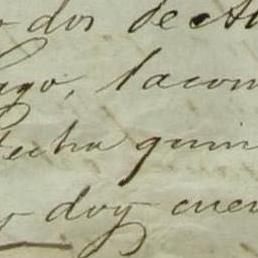 dos de A
go, la com
fecha quin
y doy cuen